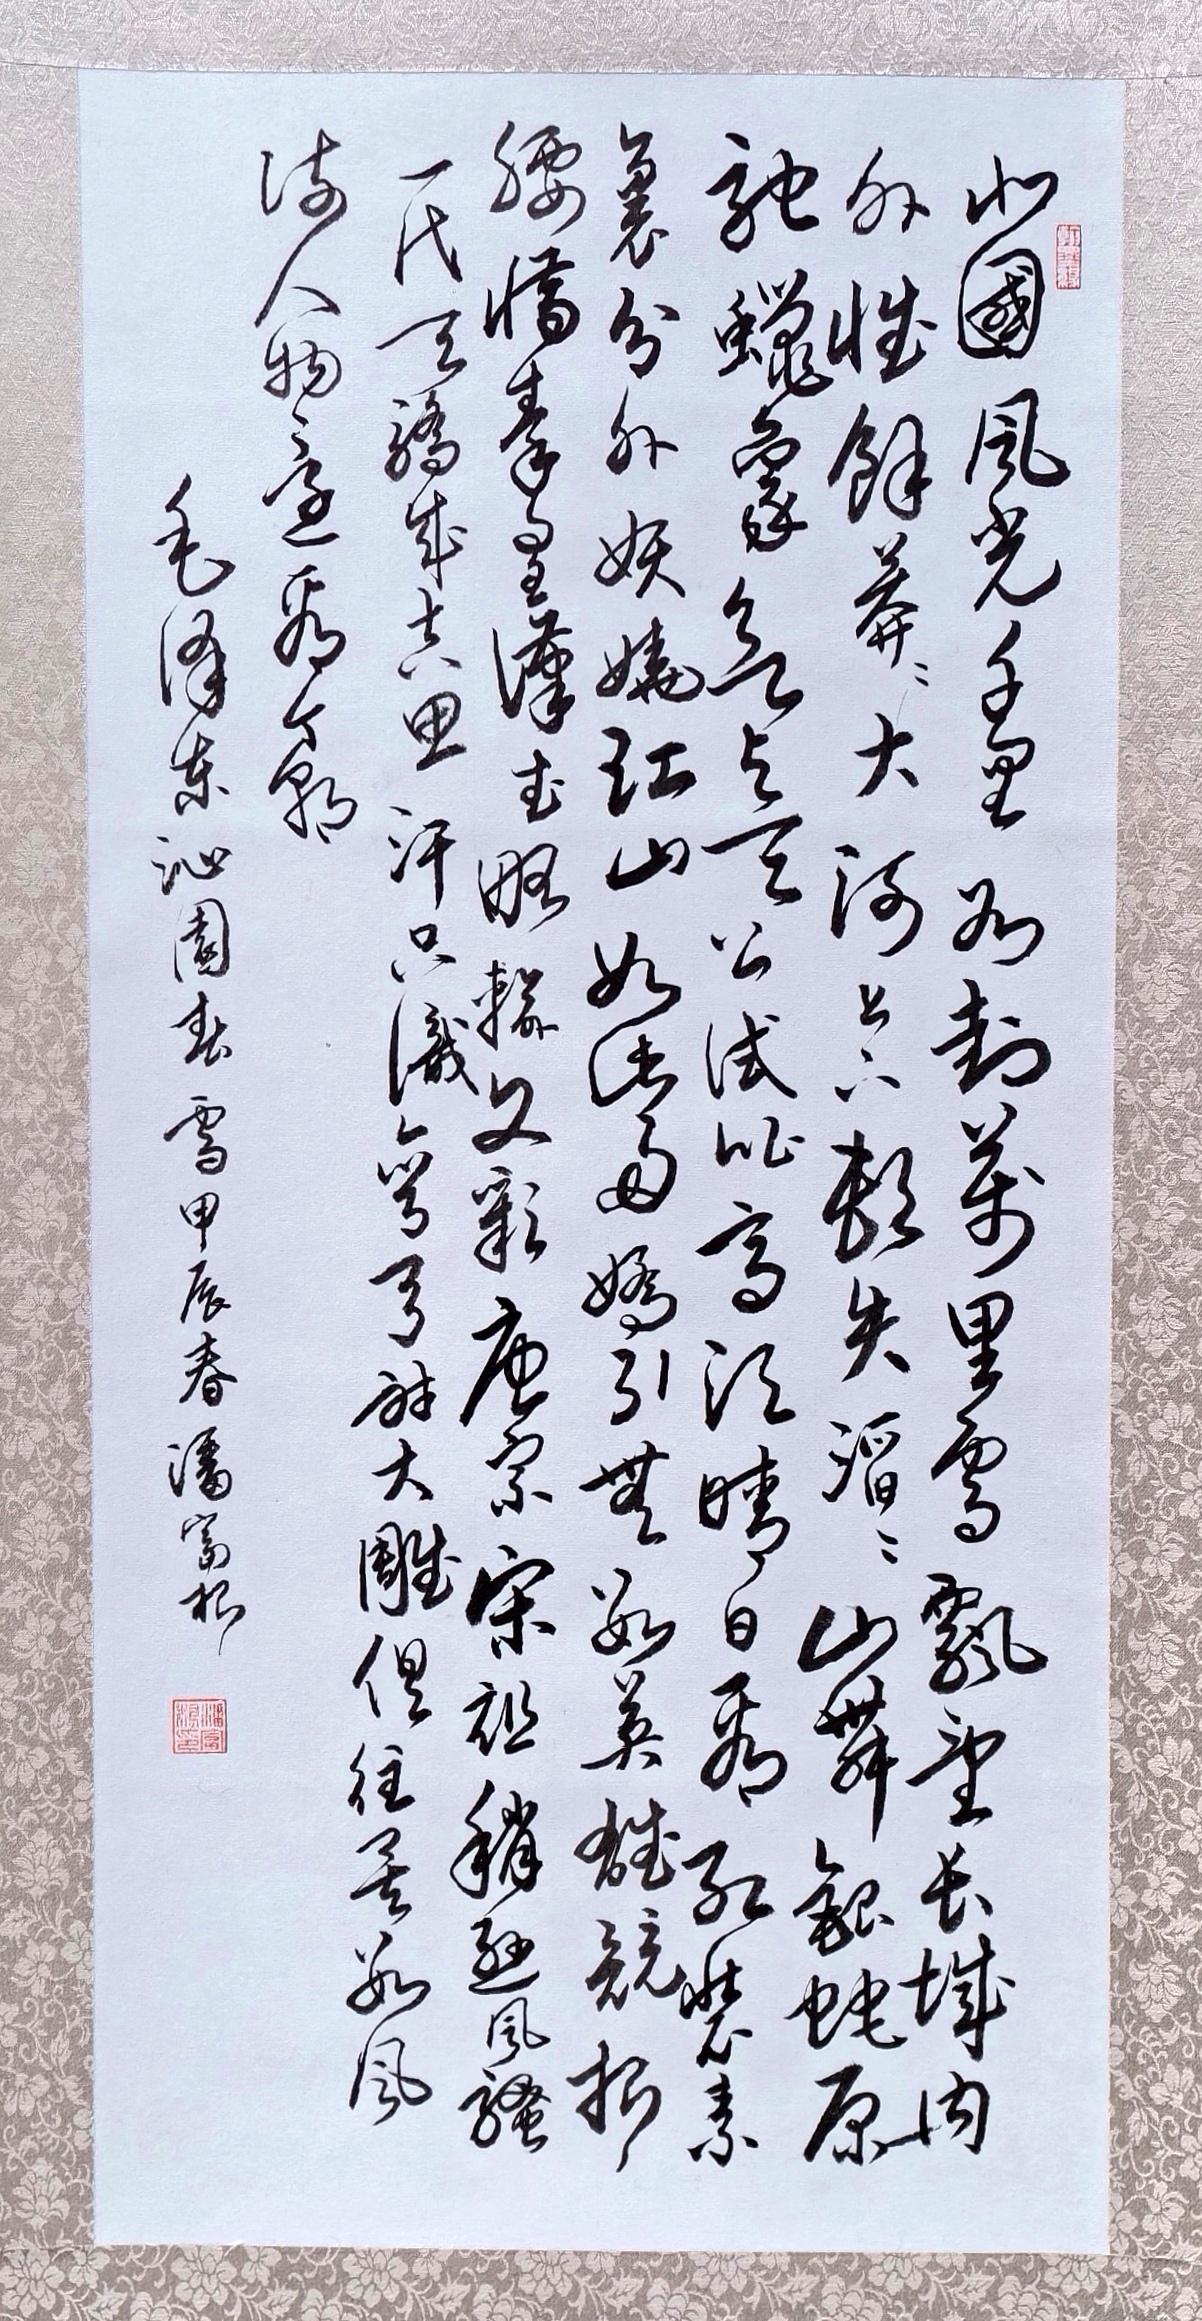 北國風光千里冰封萬里雪飄望長城内
外惟餘莽〻大河上下頓失滔〻山舞銀蛇原
馳蠟象欲与天公試比高須晴日看紅裝素
裹分外妖嬈江山如此多嬌引無數英雄競折
腰惜秦皇漢武略輸文彩唐宗宋祖稍遜風騷
一代天驕成吉思汗只識彎弓射大雕俱往矣數風
流人物還看今朝
毛澤東沁園春雪甲辰春潘富根
潘富根印